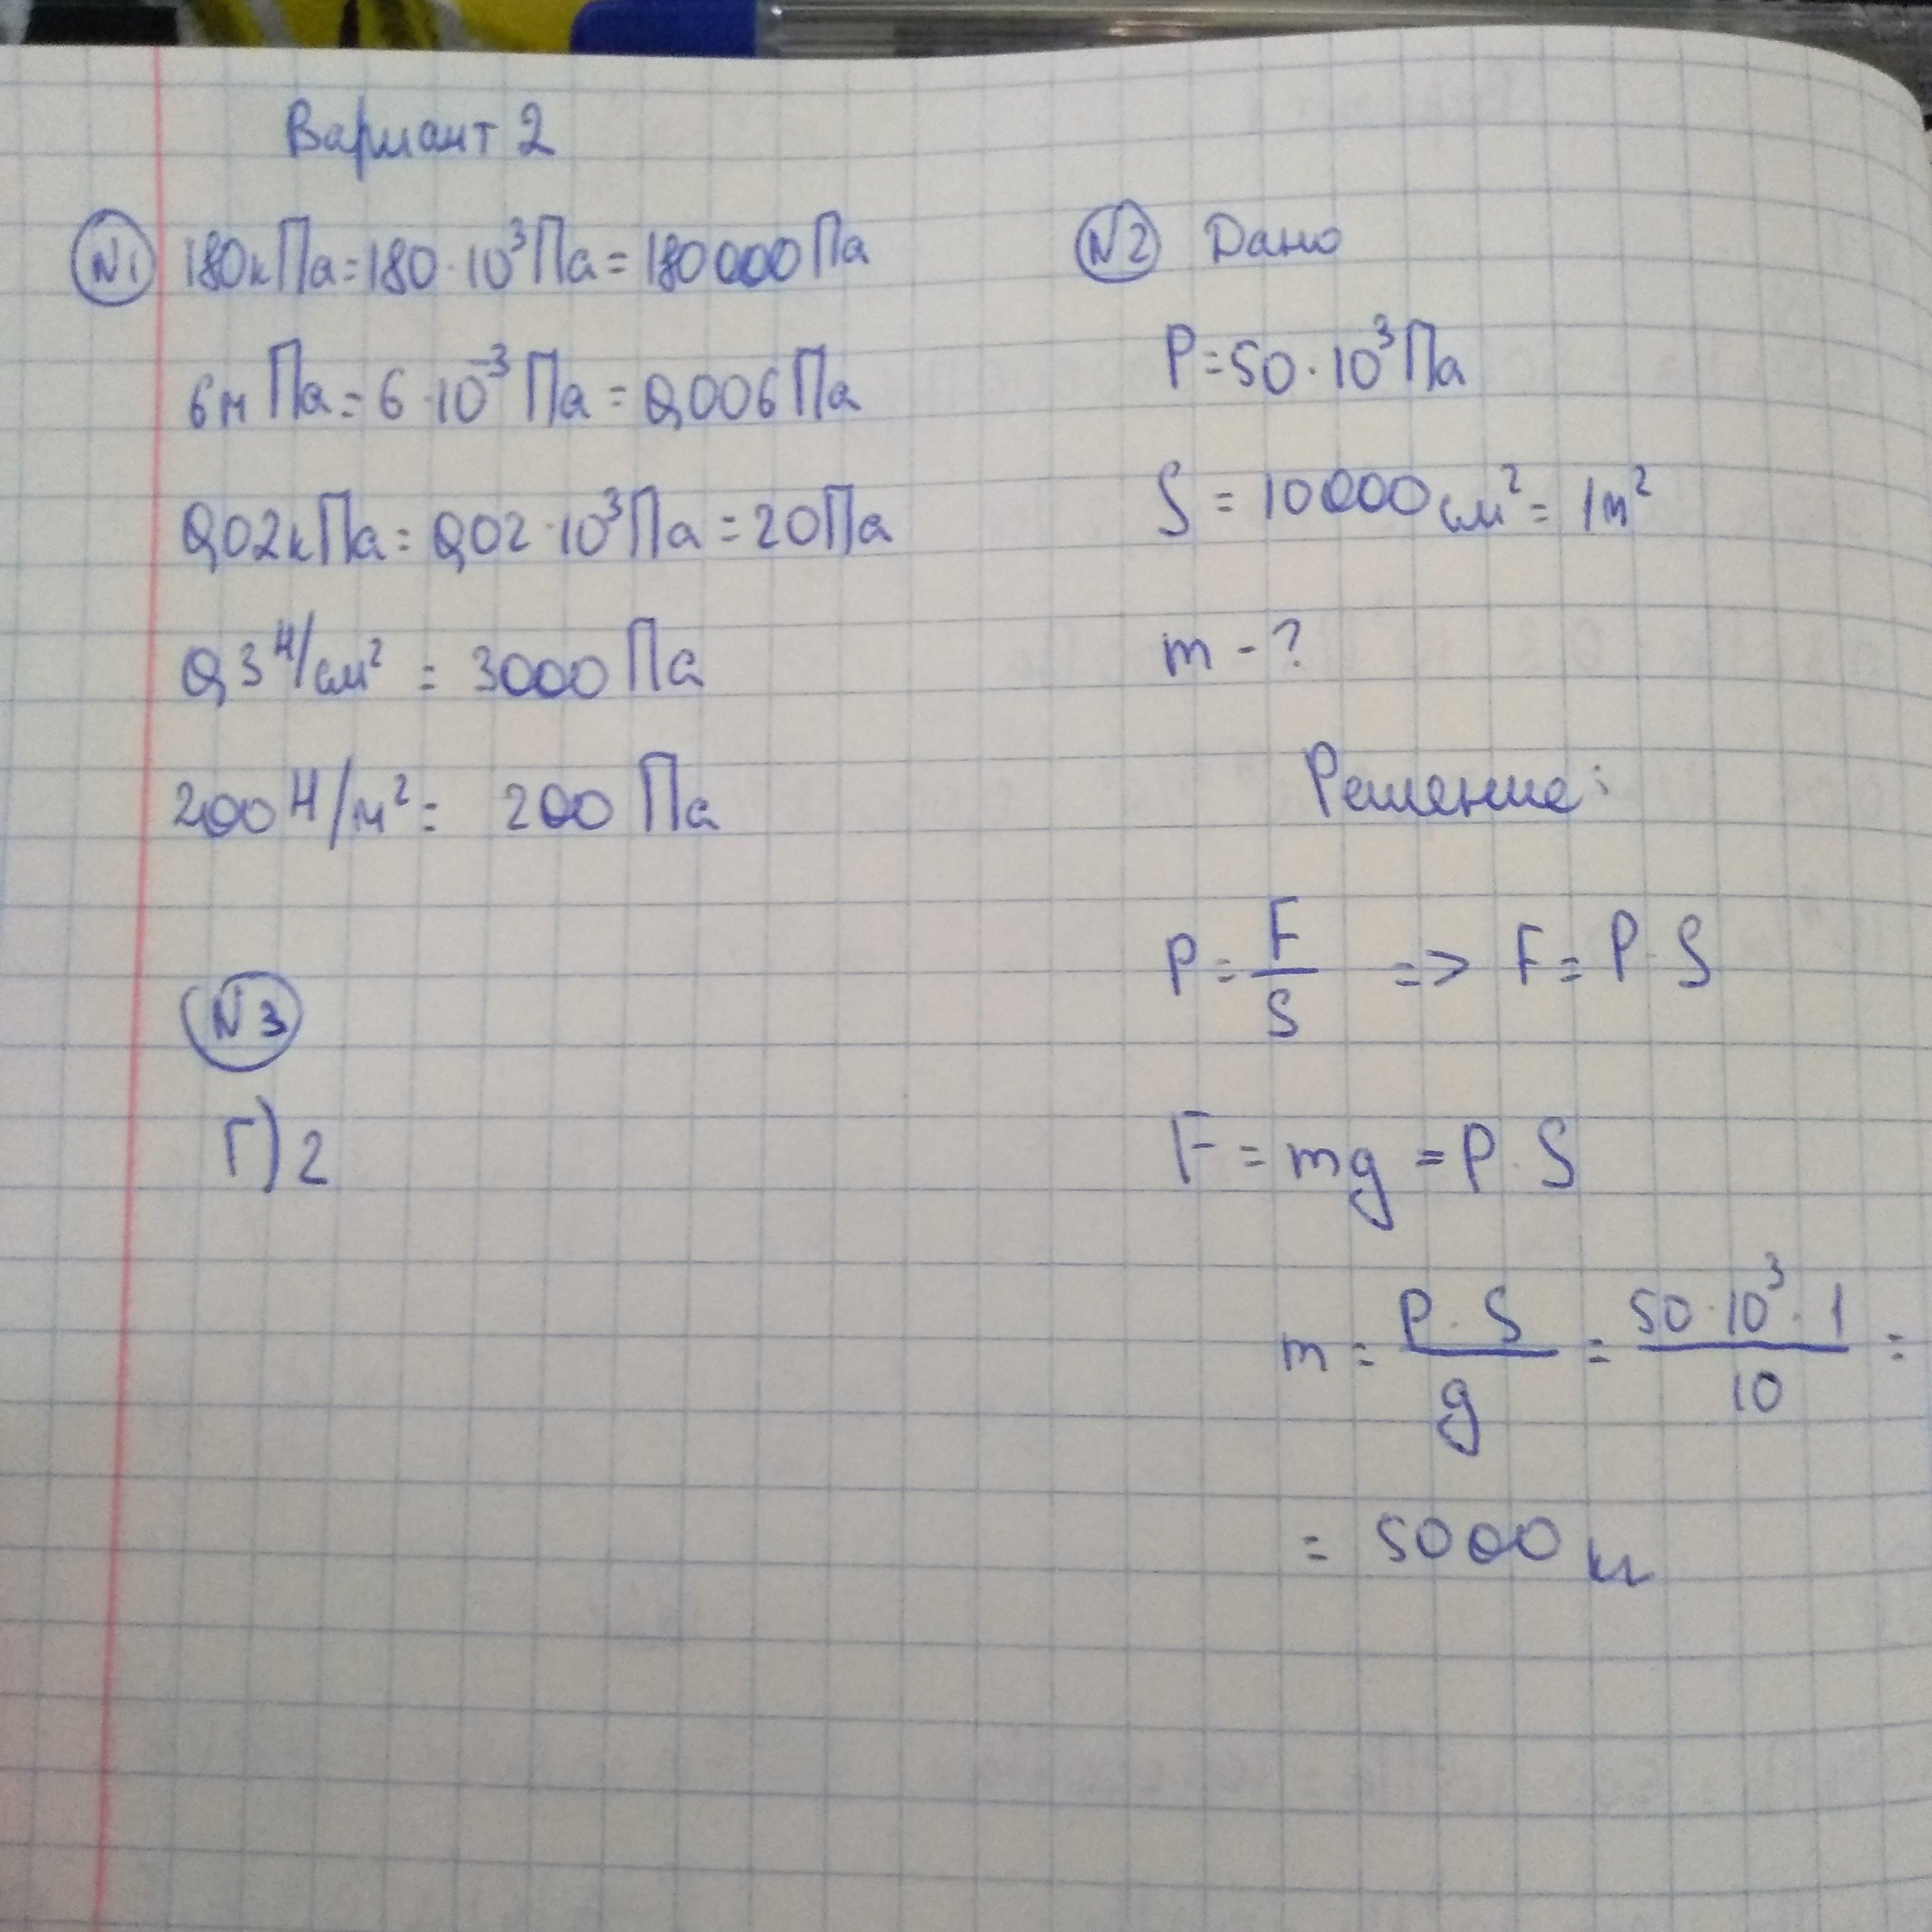 Вариант 2
№1 180кПа=180·10³Па=180000Па
6мПа=6·10⁻³Па=0,006Па
0,02кПа=0,02·10³Па=20Па
0,3Н/см² = 3000 Па
200Н/м²= 200 Па
№3
Г) 2
№2 Дано
P=50·10³Па
S = 10000см²= 1м²
m - ?
Решение:
P=F/S => F=P·S
F=mg=P·S
m = P·S/g = 50·10³·1/10 =
= 5000 кг